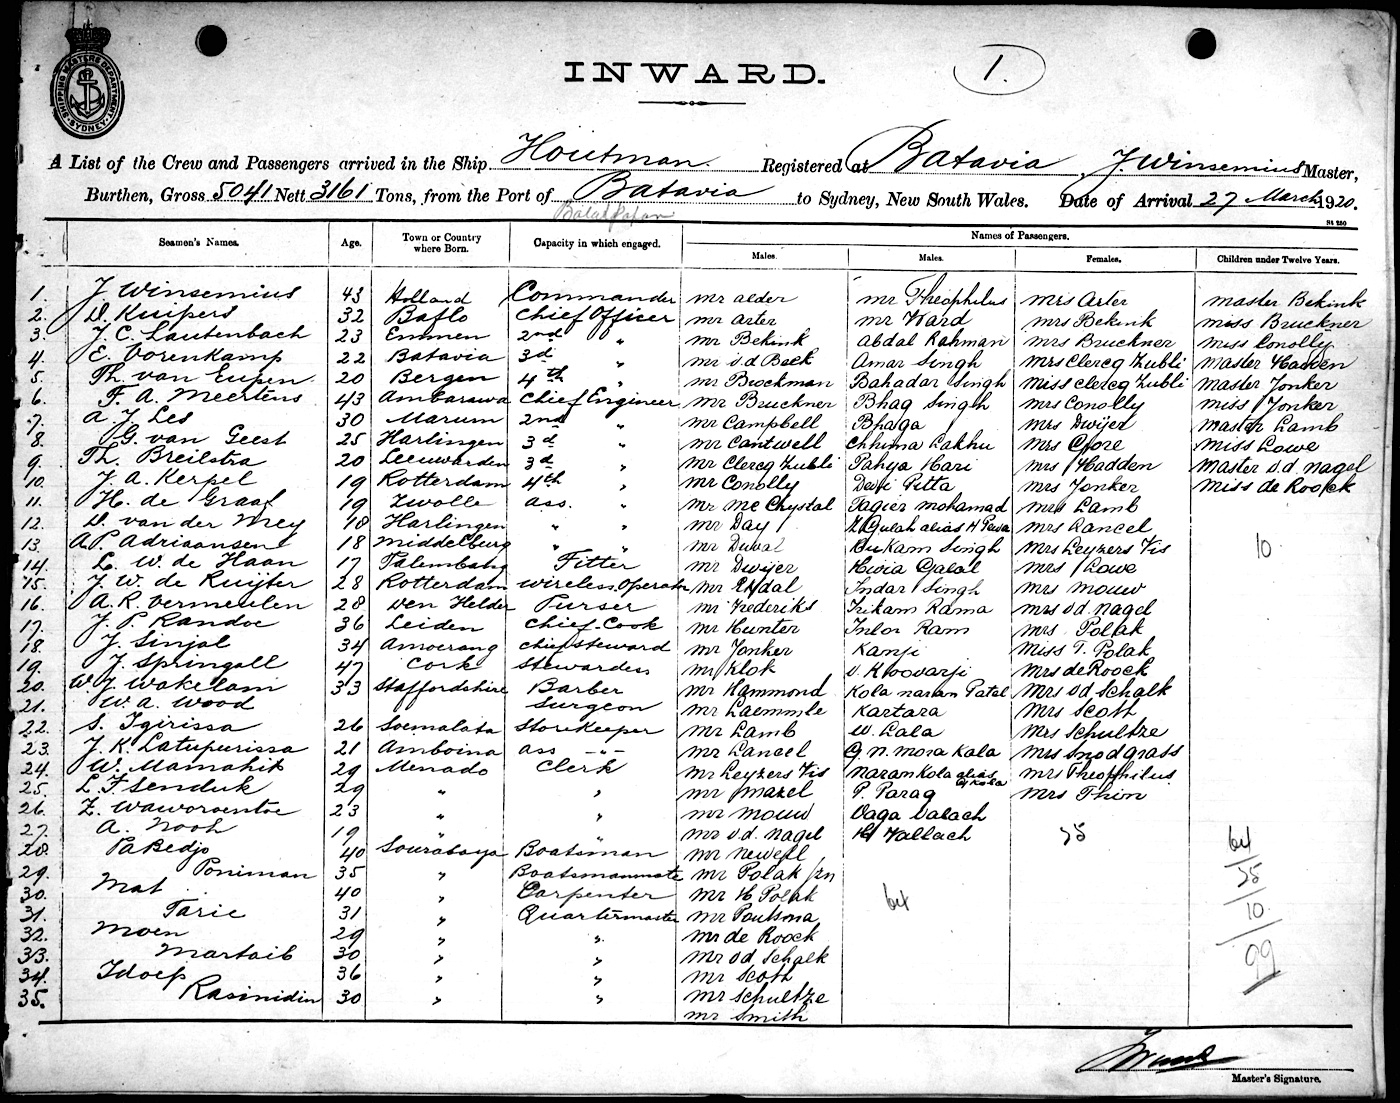 SHIPPING MASTERS DEPARTMENT
SYDNEY
INWARD.
1.
A List of the Crew and Passengers arrived in the Ship Houtman. Registered at Batavia, J. Winsemius Master,
Burthen, Gross 5041 Nett 3161 Tons, from the Port of Batavia to Sydney, New South Wales. Date of Arrival 27 March 1920.
St 250
Seamen's Names. Age. Town or Country where Born. Capacity in which engaged. Names of Passengers.
Males. Males. Females. Children under Twelve Years.
1. J Winsemius 43 Holland Commander mr alder mr Theophilus mrs Arter master Bekink
2. D. Kuipers 32 Baflo Chief Officer mr arter mr Ward mrs Bekink miss Bruckner
3. J. C. Lautenbach 23 Emmen 2nd " mr Bekink abdal Rahman mrs Bruckner miss Conolly
4. E. Vorenkamp 22 Batavia 3d " mr v.d. Beek Amar Singh mrs Clercq Zubli master Hadden
5. Th. van Eupen 20 Bergen 4th " mr Brockman Bahadar Singh miss Clercq Zubli master Jonker
6. F. A. Meertens 43 Ambarawa Chief Engineer mr Bruckner Bhag Singh mrs Conolly miss Jonker
7. A J. Les 30 Marum 2nd " mr Campbell Bhaga mrs Dwijer master Lamb
8. G. van Geest 25 Harlingen 3d " mr Cantwell Chhima Lakhu mrs Gore miss Lowe
9. Th. Breilstra 20 Leeuwarden 3d " mr Clercq Zubli Pahya Hari mrs Hadden master v.d. nagel
10. J. A. Kerpel 19 Rotterdam 4th " mr Conolly Devi Ditta mrs Jonker miss de Roock
11. H. de Graaf 19 Zwolle ass. " mr mc Chrystal Fagier mohamad mrs Lamb
12. D. van der Mey 18 Harlingen " " mr Day Gulah alias H mrs Lancel
13. A P. Adriaansens 18 Middelburg " " mr Duval Hukam Singh mrs Leyzers Vis 10
14. L. W. de Haan 17 Palembang Fitter mr Dwijer mrs Lowe
15. J. W. de Ruijter 28 Rotterdam wireless Operator mr Ekdal Indar Singh mrs mouw
16. A. R. Vermeulen 28 Den Helder Purser mr Frederiks Trikam Rama mrs v.d. nagel
17. J. P. Randoe 36 Leiden Chief Cook mr Hunter Ram mrs Polak
18. J. Sinjal 34 Amoerang chief steward mr Jonker Kanji miss T. Polak
19. J. Springall 47 Cork stewardess mr Klok v. Koovarji mrs de Roock
20. W. J. Wakelam 33 Staffordshire Barber mr Hammond Kola naram Patal mrs v.d. Schalk
21. W. A. Wood Surgeon mr Laemmle Kartara mrs Scott
22. S. Tgirissa 26 Soemalata Storekeeper mr Lamb W. Lala mrs Schultze
23. J. K. Latupurissa 21 Amboina ass -"- mr Lancel G. n. mora Kala mrs Snodgrass
24. W. Mamahit 29 Menado Clerk mr Leyzers Vis naram Kola alias G Kola mrs Theophilus
25. L. F Senduk 29 " " mr mazel P. Parag mrs Thim
26. Z. Waworoentoe 23 " mr mouw Daga Dalach
27. A. Nooh 19 " " mr v.d. nagel H Vallach 25
28. Pa Bedjo 40 Sourabaya Boatsman mr newell
29. Poniman 35 " Boatsmanmate mr Polak jrn
30. Mat 40 " Carpenter mr H Polak 64
31. Tarie 31 " Quartermaster mr Poutsma
32. Moen 29 " " mr de Roock
33. Martaib 30 " " mr v.d. Schalk
34. Idoep 36 " " mr Scott
35. Rasimidin 30 " " mr Schultze
mr Smith
64
25
10
99
Master's Signature.